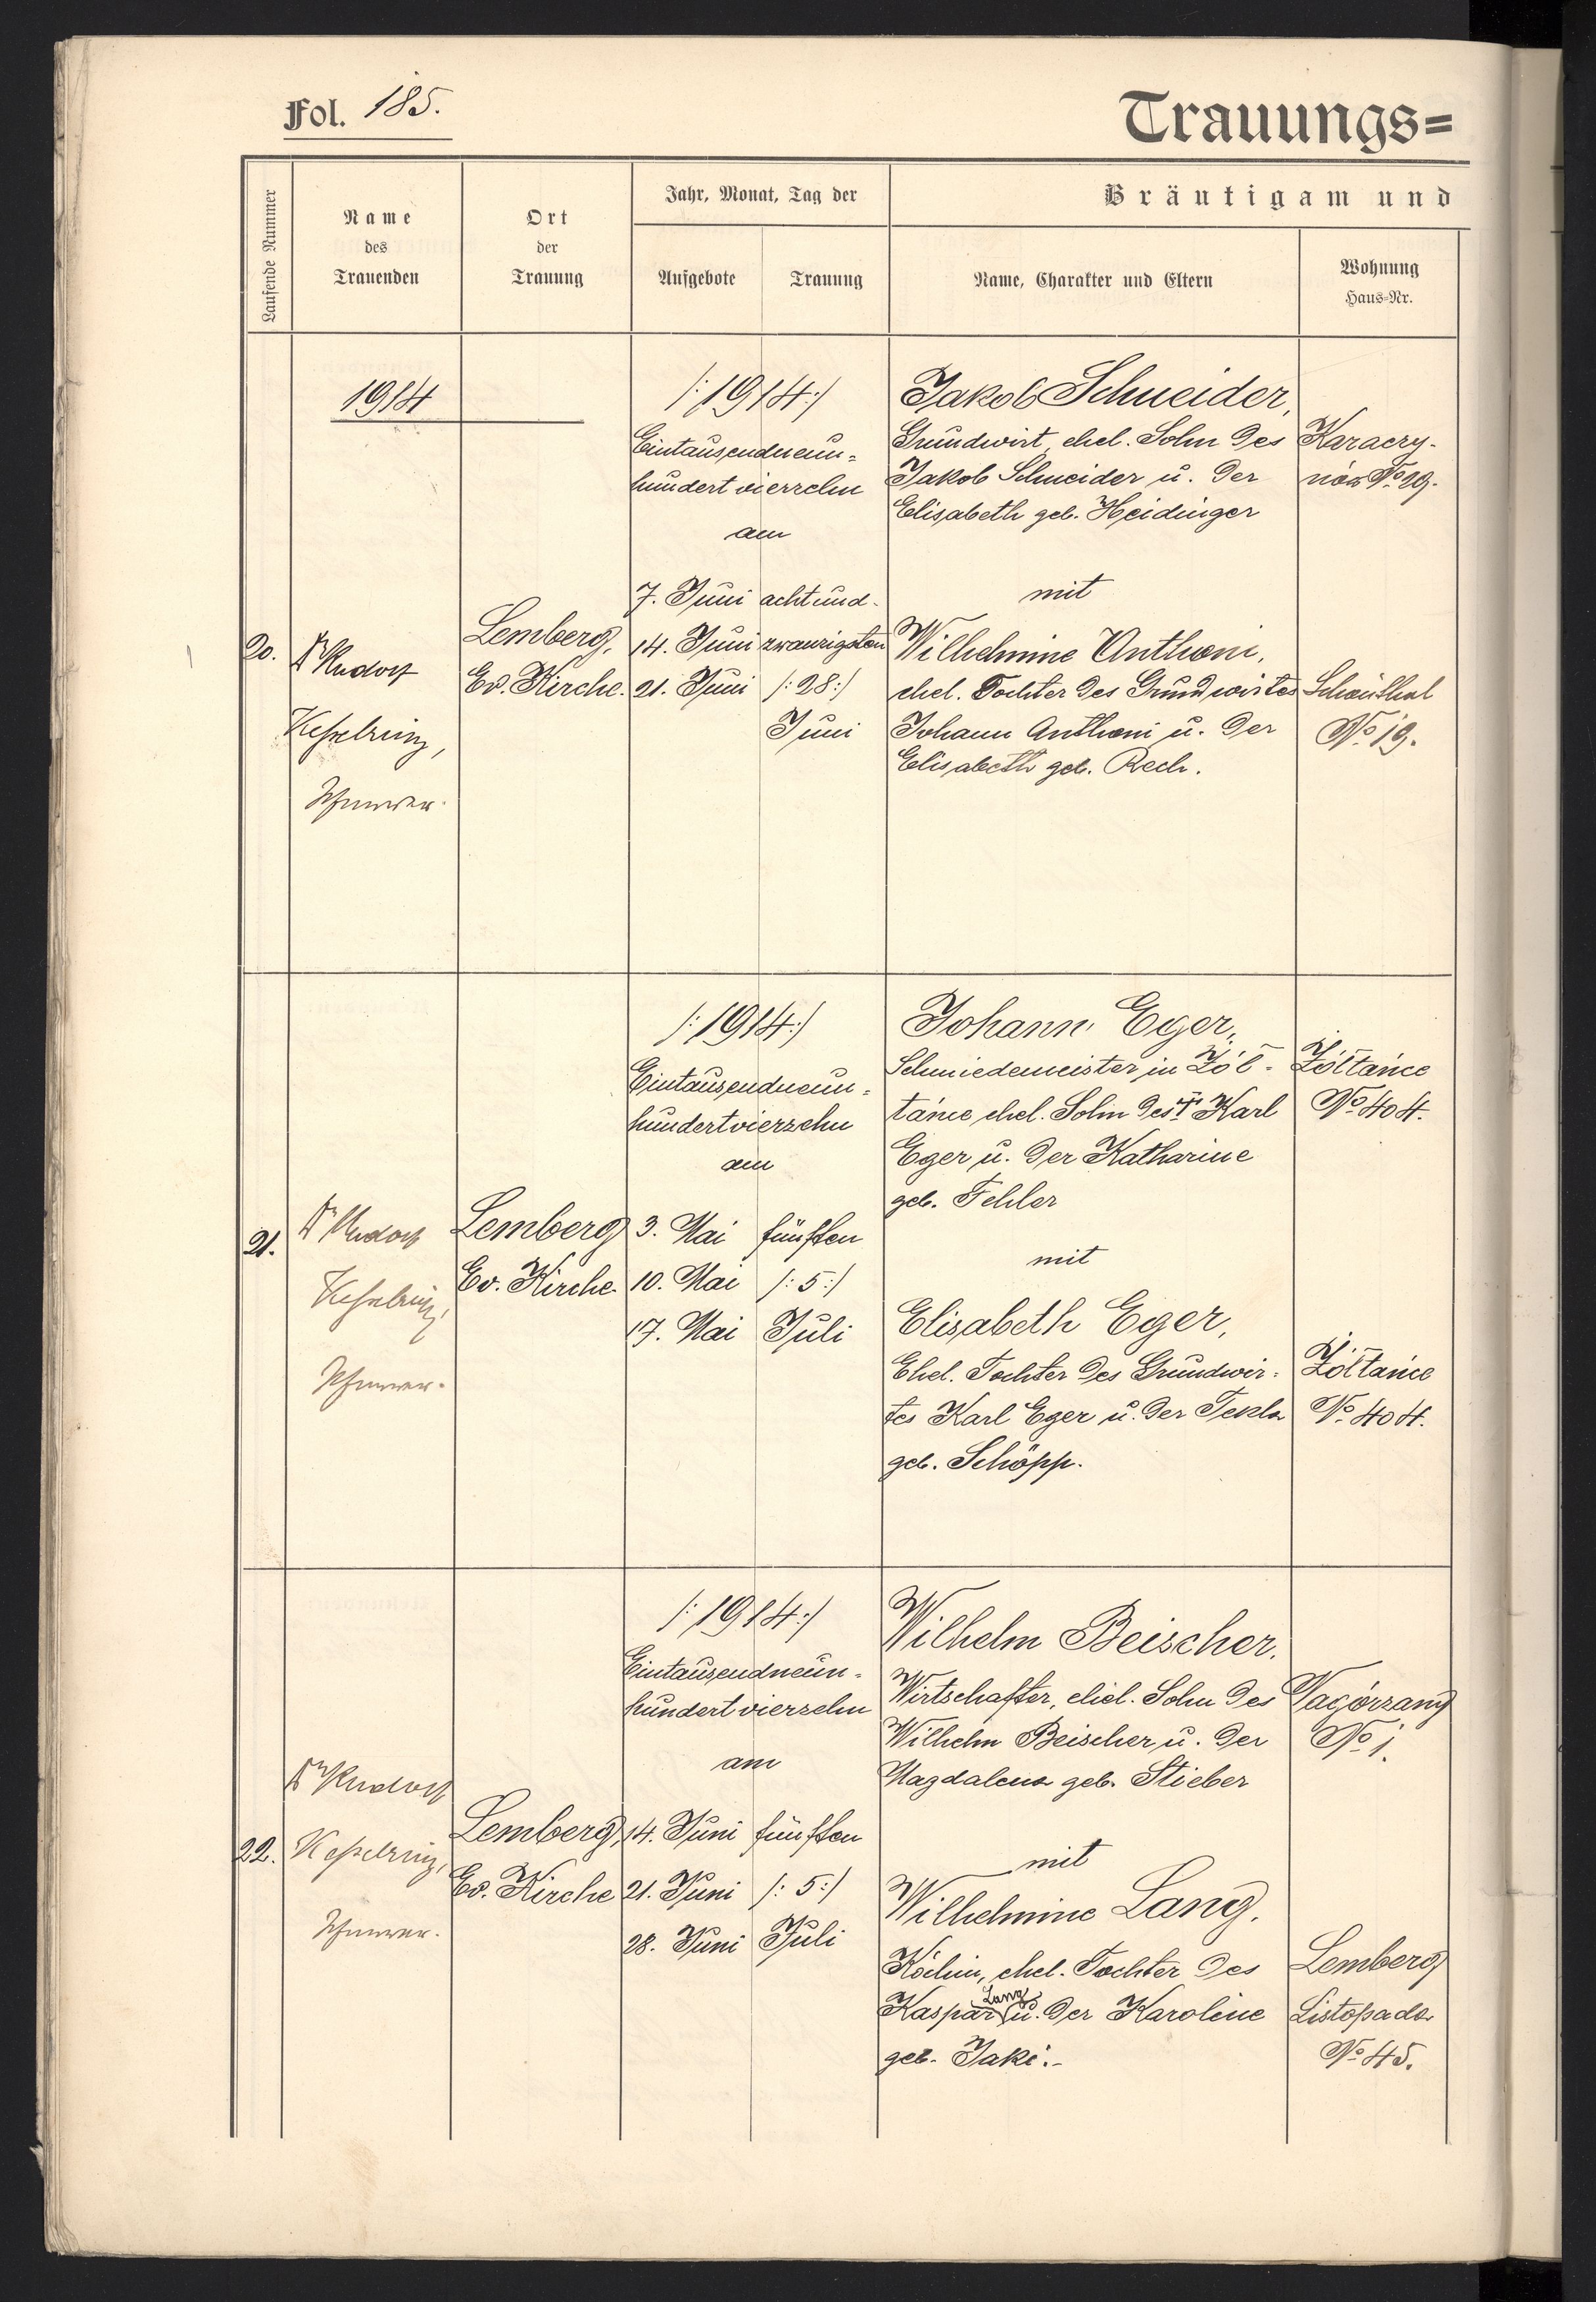 Fol. 185.
Trauungs=
Laufende Nummer
Name
des
Trauenden
Ort
der
Trauung
Jahr, Monat, Tag der
Aufgebote
Trauung
Bräutigam und
Name, Charakter und Eltern
Wohnung
Haus-Nr.
1914
20.
Dr Rudolf
Kesselring,
Pfarrer.
Lemberg,
Ev. Kirche.
/: 1914 :/
Eintausendneun=
hundert vierzehn
am
7. Juni
14. Juni
21. Juni
achtund-
zwanzigsten
/: 28 :/
Juni
Jakob Schneider,
Grundwirt, ehel. Sohn des
Jakob Schneider u. der
Elisabeth geb. Heidinger
mit
Wilhelmine Anthoni,
ehel. Tochter des Grundwirtes
Johann Anthoni u. der
Elisabeth geb. Rech.
Karaczy-
nów No 29.
Schönthal
No 19.
21.
Dr Rudolf
Kesselring,
Pfarrer.
Lemberg
Ev. Kirche.
/: 1914 :/
Eintausendneun=
hundertvierzehn
am
3. Mai
10. Mai
17. Mai
fünften
/: 5 :/
Juli
Johann Eger,
Schmiedemeister in Żół-
tańce ehel. Sohn des † Karl
Eger u. der Katharine
geb. Fehler
mit
Elisabeth Eger,
Ehel. Tochter des Grundwir-
tes Karl Eger u. der Tekla
geb. Schöpp.
Żółtańce
No 404.
Żółtańce
No 404.
22.
Dr Rudolf
Kesselring,
Pfarrer.
Lemberg,
Ev. Kirche
/: 1914 :/
Eintausendneun=
hundert vierzehn
am
14. Juni
21. Juni
28. Juni
fünften
/: 5 :/
Juli
Wilhelm Beischer,
Wirtschafter, ehel. Sohn des
Wilhelm Beischer u. der
Magdalena geb. Stieber
mit
Wilhelmine Lang,
Köchin, ehel. Tochter des
Kaspar Lang u. der Karoline
geb. Jaki.-
No 1.
Lemberg
Listopada
No 45.